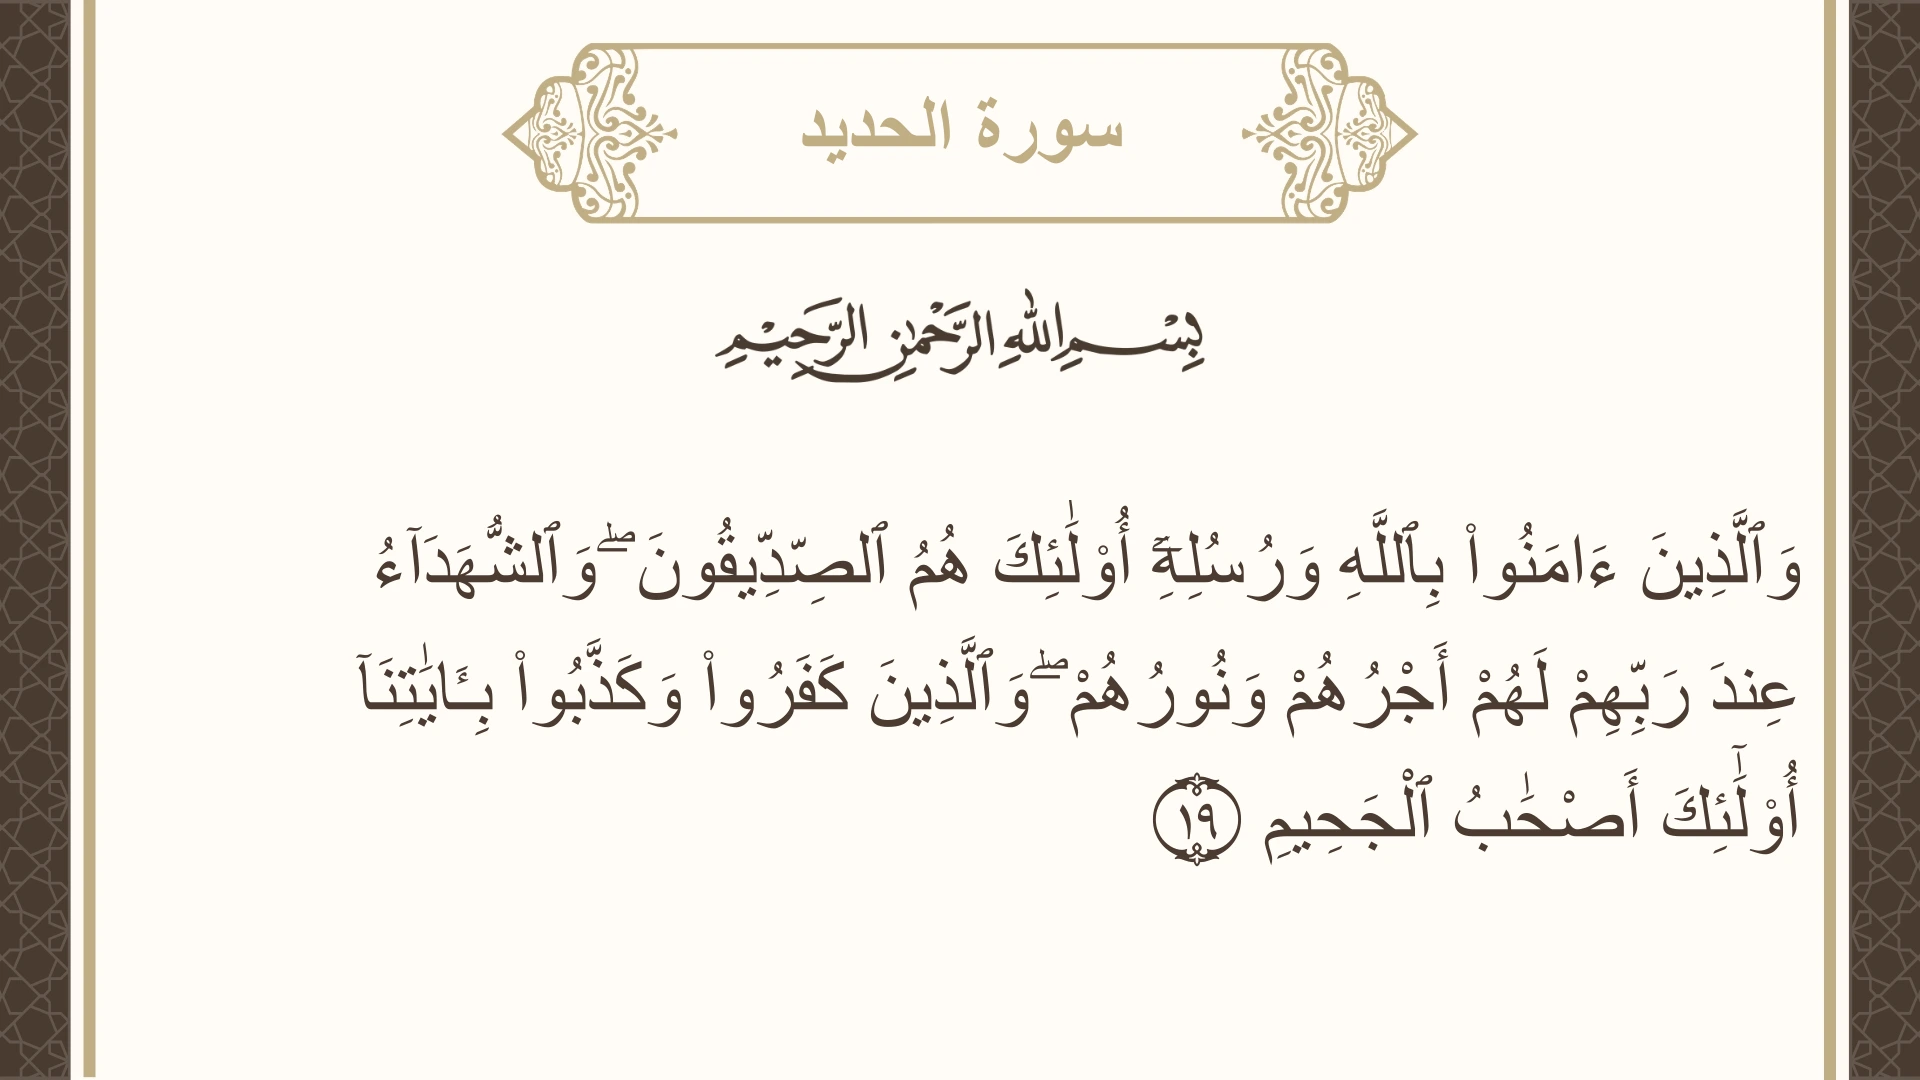 سورة الحديد
بِسْمِ اللهِ الرَّحْمٰنِ الرَّحِيْمِ
وَٱلَّذِينَ ءَامَنُوا۟ بِٱللَّهِ وَرُسُلِهِۦٓ أُو۟لَٰئِكَ هُمُ ٱلصِّدِّيقُونَ ۖ وَٱلشُّهَدَآءُ
عِندَ رَبِّهِمْ لَهُمْ أَجْرُهُمْ وَنُورُهُمْ ۖ وَٱلَّذِينَ كَفَرُوا۟ وَكَذَّبُوا۟ بِـَٔايَٰتِنَآ
أُو۟لَٰٓئِكَ أَصْحَٰبُ ٱلْجَحِيمِ ١٩